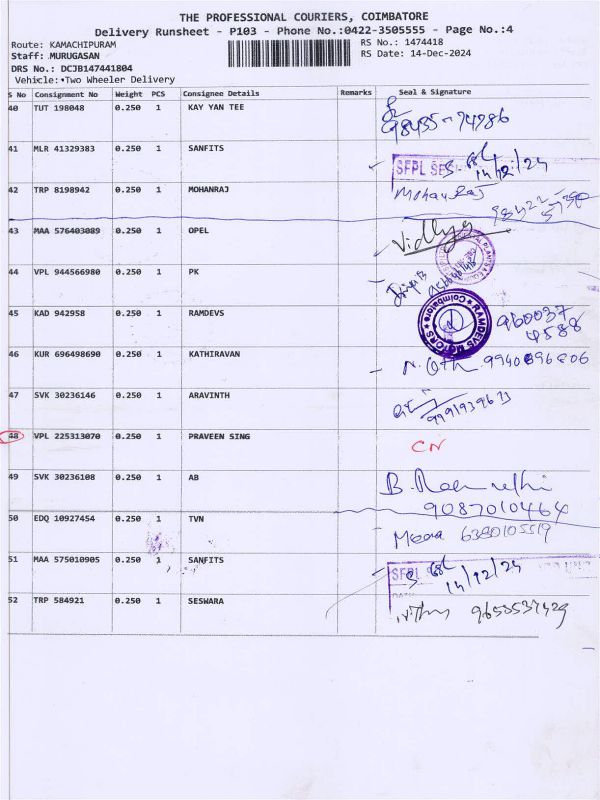 THE PROFESSIONAL COURIERS, COIMBATORE
Delivery Runsheet - P103 - Phone No.:0422-3505555 - Page No.:4
Route: KAMACHIPURAM RS No.: 1474418
Staff: MURUGASAN RS Date: 14-Dec-2024
DRS No.: DCJB147441804
Vehicle: Two Wheeler Delivery
S No Consignment No Weight PCS Consignee Details Remarks Seal & Signature
40 TUT 198048 0.250 1 KAY YAN TEE
41 MLR 41329383 0.250 1 SANFITS SFPL 14/12/24
42 TRP 8198942 0.250 1 MOHANRAJ Mohan Raj
43 MAA 576403089 0.250 1 OPEL Vidhya
44 VPL 944566980 0.250 1 PK
45 KAD 942958 0.250 1 RAMDEVS RAMDEVS MOTORS Coimbatore 960037
4588
46 KUR 696498690 0.250 1 KATHIRAVAN
47 SVK 30236146 0.250 1 ARAVINTH
48 VPL 225313070 0.250 1 PRAVEEN SING CN
49 SVK 30236108 0.250 1 AB B.
9087010464
50 EDQ 10927454 0.250 1 TVN Meera 6380105519
51 MAA 575010905 0.250 1 SANFITS SFPL 14/12/24
52 TRP 584921 0.250 1 SESWARA